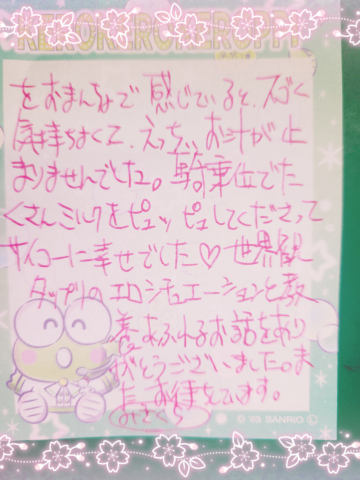 KEROKEROKEROPPI
をおまんちょで感じていると、スゴく
気持ちよくて、えっちぃお汁が止
まりませんでした。騎乗位でた
くさんミルクをピュッピュしてくださって
サイコーに幸せでした♡世界観
タップリのエロシチュエーションと教
養あふれるお話をあり
がとうございました。ま
たお待ちしてます。
みさくら
© '88 SANRIO